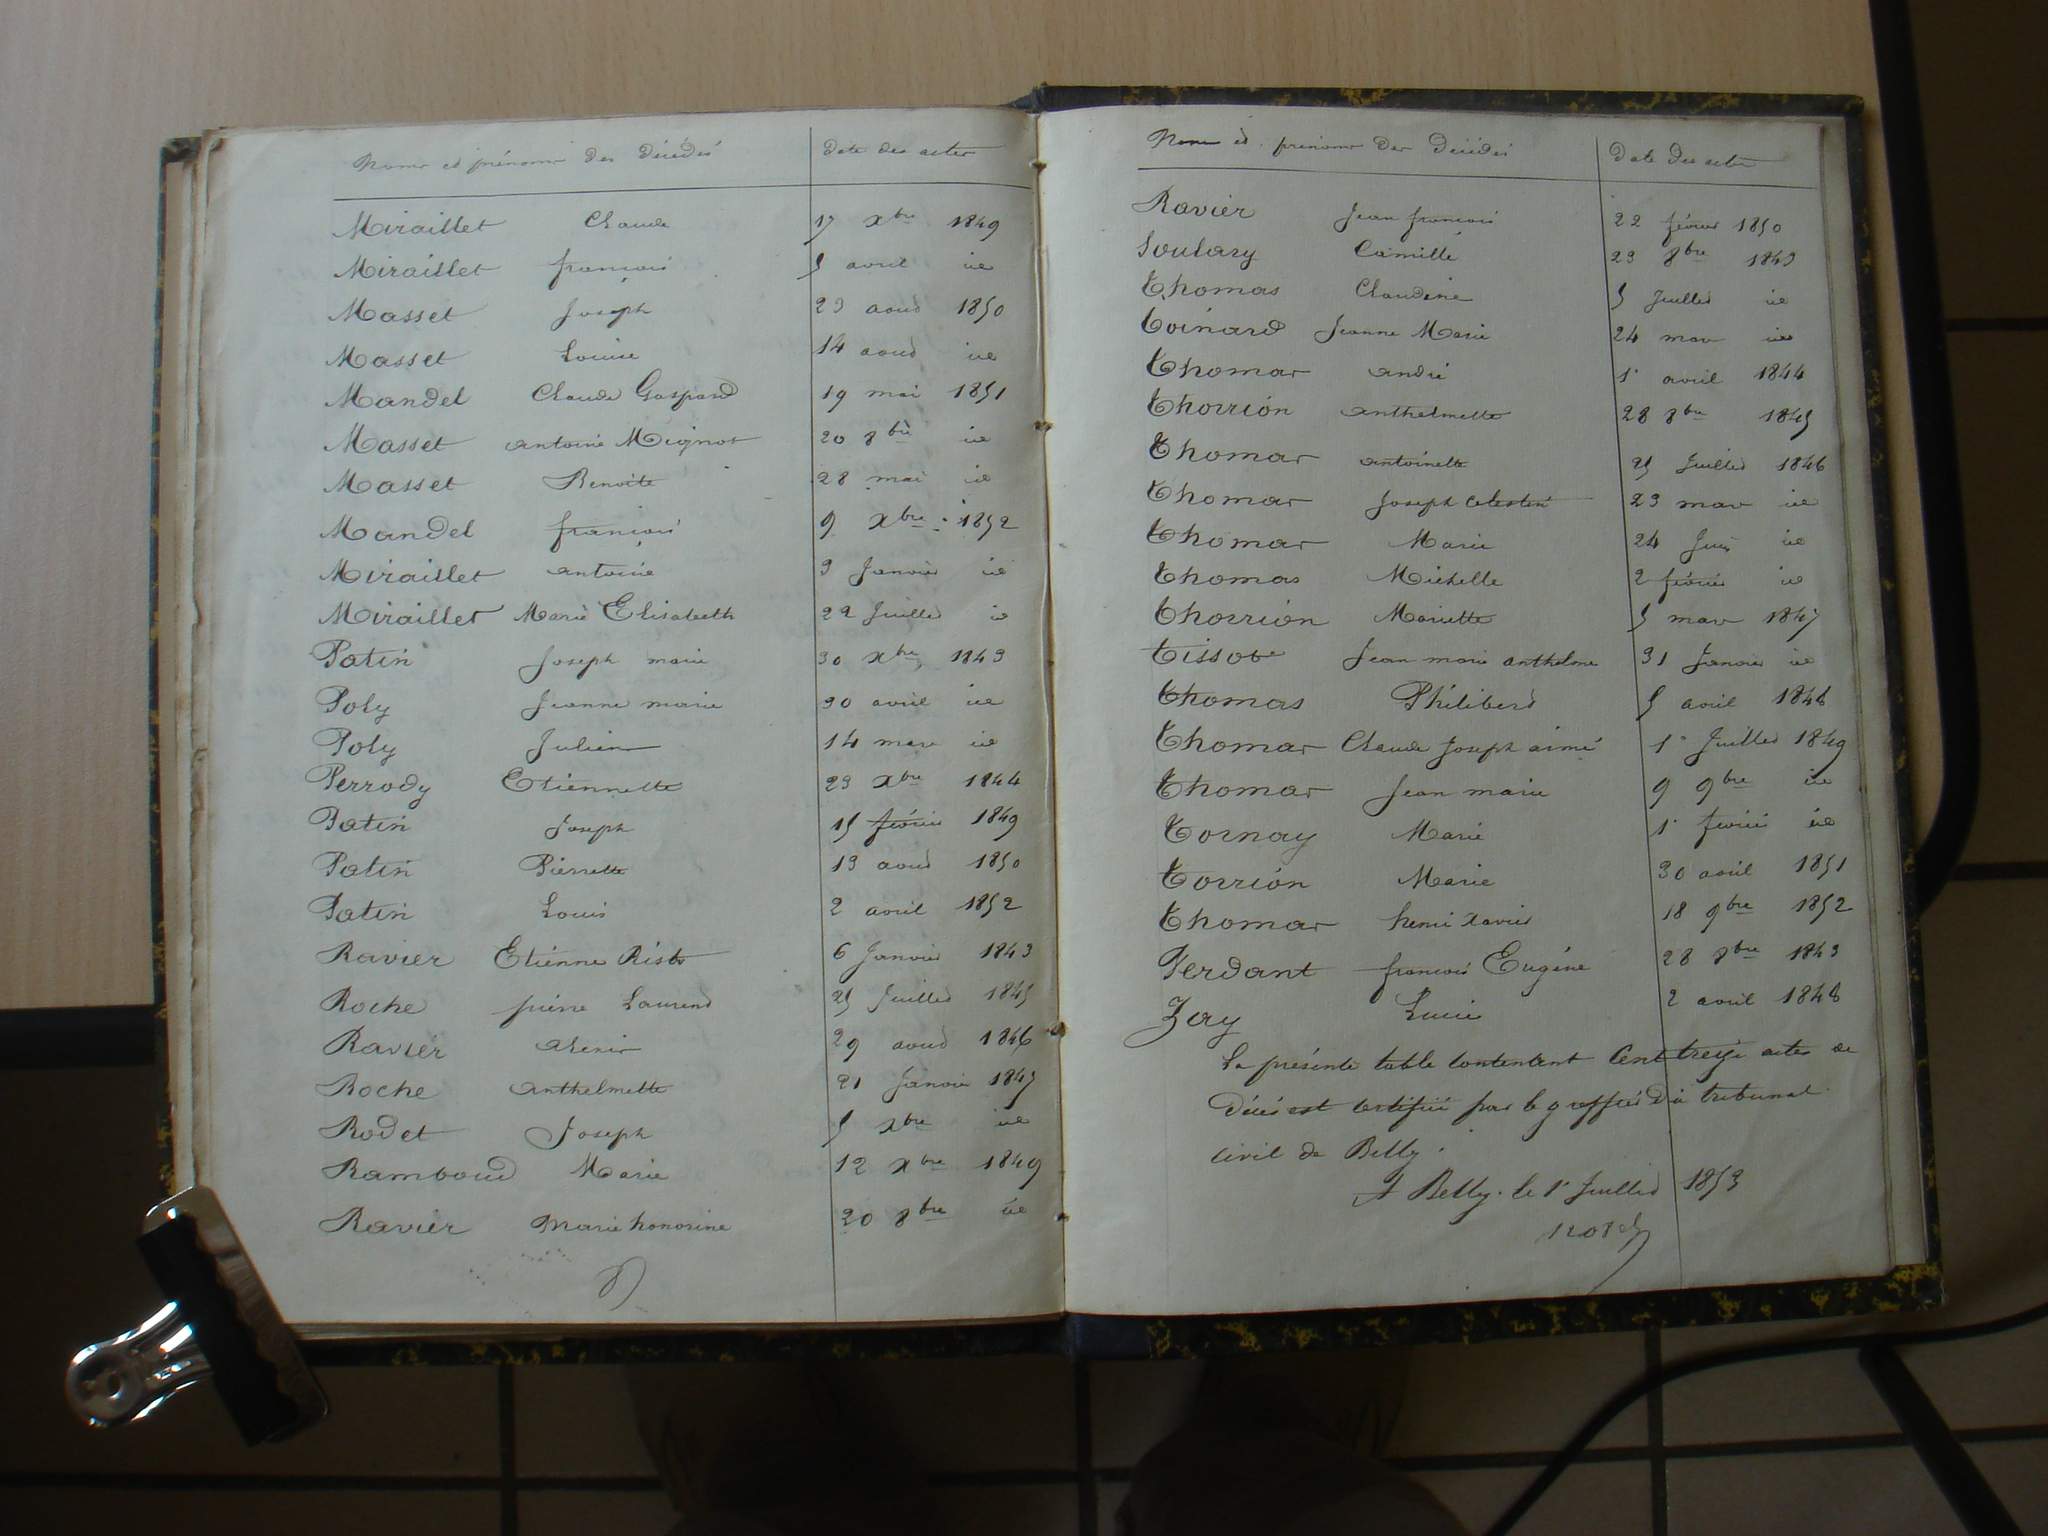 Noms et prénoms des Décédés Date des actes
Miraillet Claude 17 Xbre 1849
Miraillet françois 5 avril id
Masset Joseph 23 aout 1850
Masset Louise 14 aout id
Mandel Claude Gaspard 19 mai 1851
Masset antoine Mignot 20 8bre id
Masset Benoite 28 mai id
Mandel françois 9 Xbre 1852
Miraillet antoine 3 Janvier id
Miraillet Marie Elisabeth 22 Juillet id
Patin Joseph marie 30 Xbre 1843
Poly Jeanne marie 30 avril id
Poly Julien 14 mars id
Perrody Etiennette 23 Xbre 1844
Patin Joseph 15 février 1849
Patin Pierrette 13 aout 1850
Patin Louis 2 avril 1852
Ravier Etienne 6 Janvier 1843
Roche pierre Laurend 25 Juillet 1845
Ravier 29 aout 1846
Roche anthelmette 21 Janvier 1847
Rodet Joseph 5 Xbre id
Ramboud Marie 12 Xbre 1849
Ravier Marie honorine 20 8bre id
Noms et prénoms des Décédés Date des actes
Ravier Jean françois 22 février 1850
Soulary Camille 23 8bre 1843
Thomas Claudine 5 Juillet id
Toinard Jeanne Marie 24 mars id
Thomas andré 1er avril 1844
Thorrion anthelmette 28 8bre 1845
Thomas antoinette 25 Juillet 1846
Thomas Joseph Celestin 23 mars id
Thomas Marie 24 Juin id
Thomas Michelle 2 février id
Thorrion Mariette 5 mars 1847
Tissot Jean marie anthelme 31 Janvier id
Thomas Philiberd 5 avril 1848
Thomas Claude Joseph aimé 1er Juillet 1849
Thomas Jean marie 9 9bre id
Tornay Marie 1er février id
Torrion Marie 30 avril 1851
Thomas henri Xavier 18 9bre 1852
Verdant françois Eugéne 28 8bre 1843
Zay Lucie 2 avril 1848
La présente table contenant Cent treize actes de
Décés est certifiée par le greffier du tribunal
civil de Belley.
A Belley. le 1er Juillet 1853